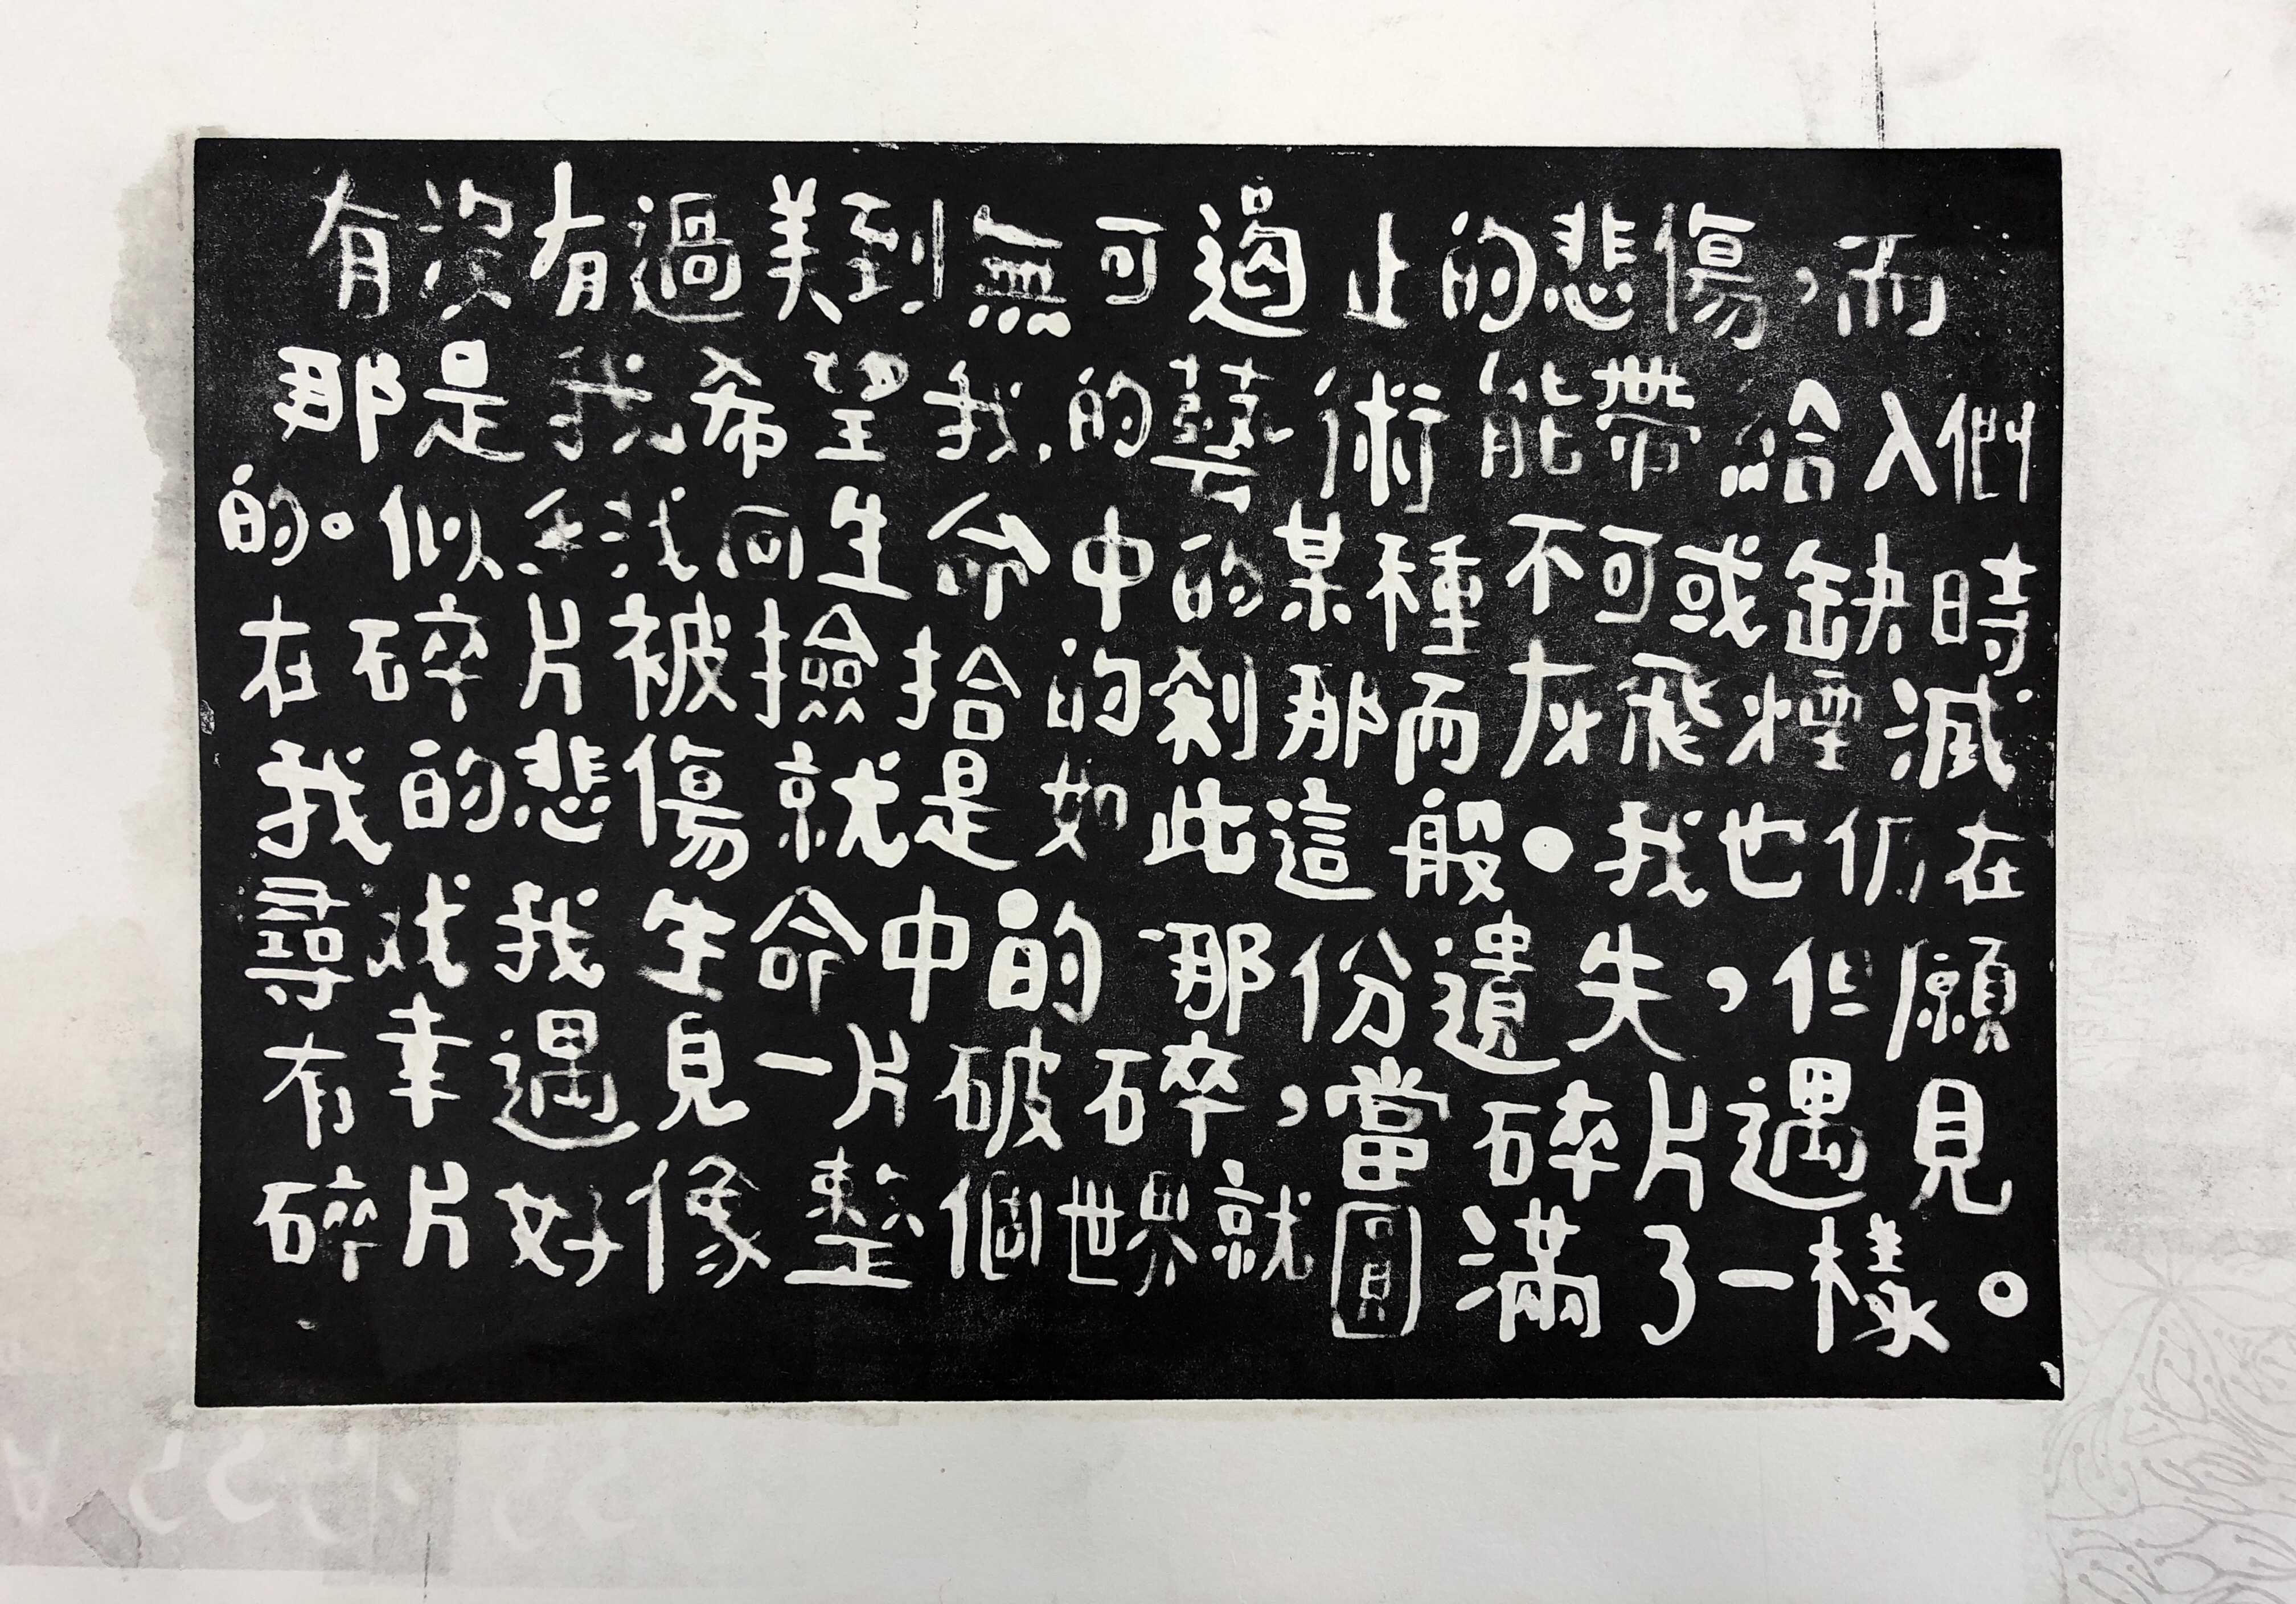 有沒有過美到無可遏止的悲傷，而
那是我希望我的藝術能帶給人們
的。似乎找回生命中的某種不可或缺時
在碎片被撿拾的剎那而灰飛煙滅
我的悲傷就是如此這般。我也仍在
尋找我生命中的那份遺失，但願
有幸遇見一片破碎，當碎片遇見
碎片好像整個世界就圓滿了一樣。